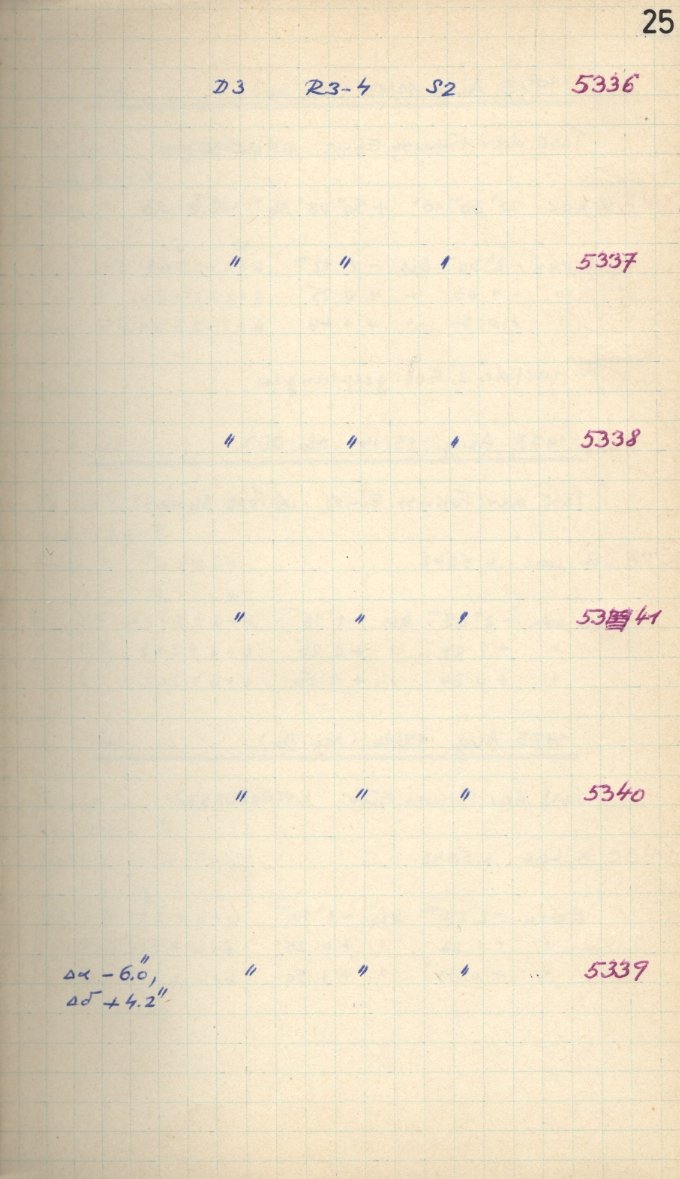 25
D3 R3-4 S2 5336
" " " 5337
" " " 5338
" " " 5341
" " " 5340
Δα -6."0, " " " 5339
Δδ +4.2"